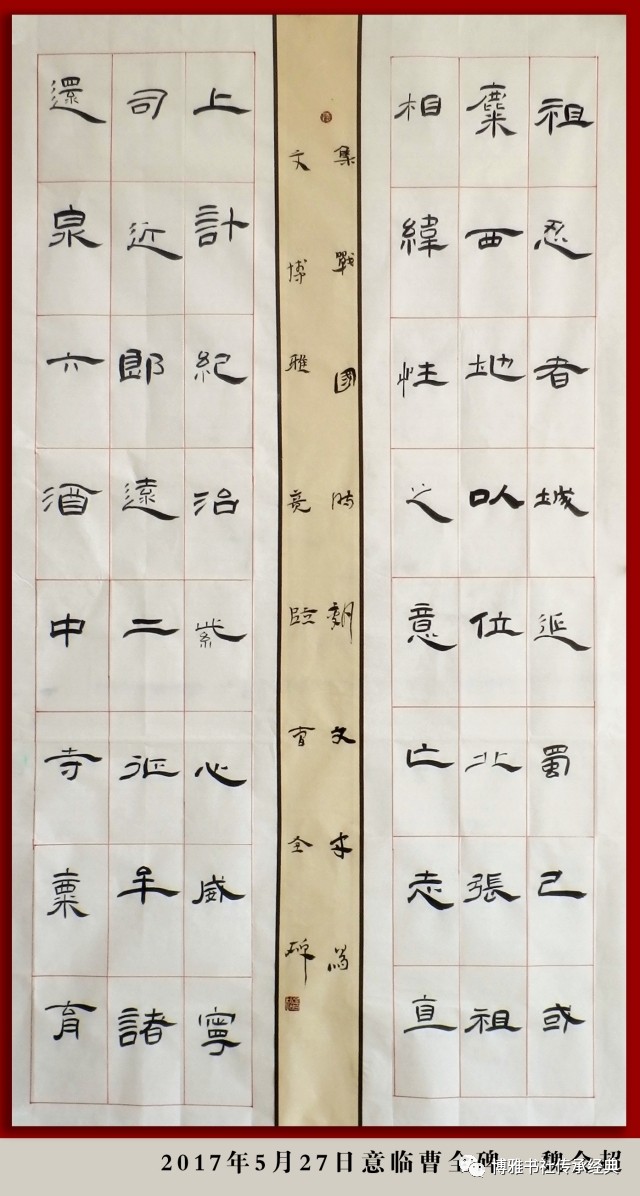 祖忍者城延蜀己或
麋西地以位北張祖
相緯性之意亡志直
集戰國時文
文博雅竞臨全碑
上計紀治紫心威寧
司近郎遠二征牟諸
還泉六酒中寺稟育
2017年5月27日意临曹全碑 魏全超
博雅书社传承经典